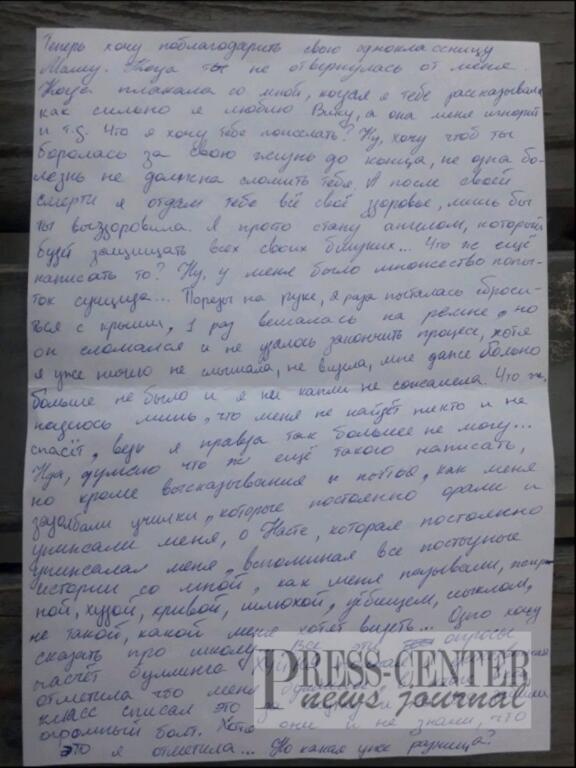 Теперь хочу поблагодарить свою одноклассницу
Машу. Тогда ты не отвернулась от меня.
Тогда плакала со мной, когда я тебе рассказывала
как сильно я люблю Вику, а она меня игнорит
и т.д. Что я хочу тебе пожелать? Ну, хочу чтоб ты
боролась за свою жизнь до конца, не одна бо-
лезнь не должна сломить тебя. А после своей
смерти я отдам тебе всё своё здоровье, лишь бы
ты выздоровила. Я просто стану ангелом, который
будет защищать всех своих близких... Что же ещё
написать то? Ну, у меня было множество попы-
ток суицида... Порезы на руке, я раза пыталась сброси-
ться с крыши, 1 раз вешалась на ремне, но
он сломался и не удалось закончить процесс, хотя
я уже ничего не слышала, не видела, мне даже больно
больше не было и я ни капли не сожалела. Что ж,
надеюсь лишь, что меня не найдёт никто и не
спасёт, ведь я правда так больше не могу...
Нда, думаю что же ещё такого написать,
но кроме высказывания о том, как меня
задолбали училки, которые постоянно орали и
унижали меня, о Насте, которая постоянно
унижала меня, вспоминая все постыдные
истории со мной, как меня называли
ной, худой, кривой, шлюхой, уёбищем,
не такой, какой меня хотят видеть... Одно хочу
сказать про школу. Все эти опросы
насчёт буллинга
отметила что меня
класс списал это за
огромный болт. Хотя они и не знали, что
это я отметила... Но какая уже разница?
PRESS-CENTER
news journal